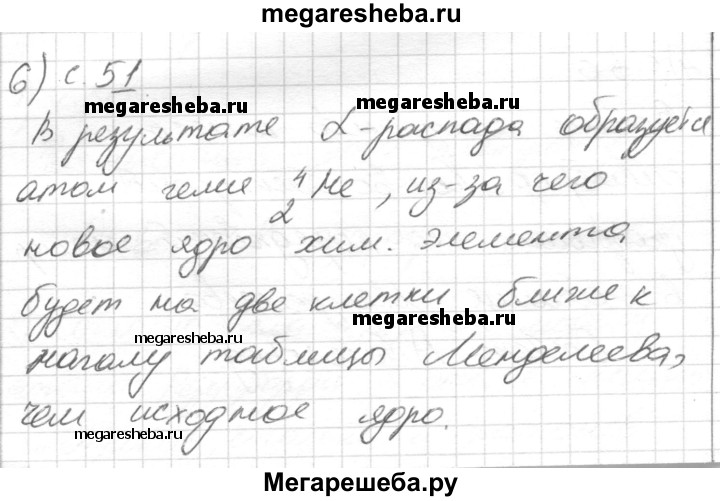 megaresheba.ru
6) с. 51
megaresheba.ru megaresheba.ru
В результате α-распада образуется
атом гелия ⁴₂He, из-за чего
новое ядро хим. элемента
будет на две клетки ближе к
megaresheba.ru megaresheba.ru
началу таблицы Менделеева,
чем исходное ядро.
megaresheba.ru
Мегарешеба.ру